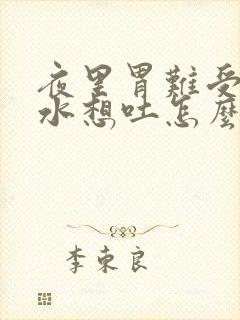 夜里胃難受
水想吐怎麼
李東良